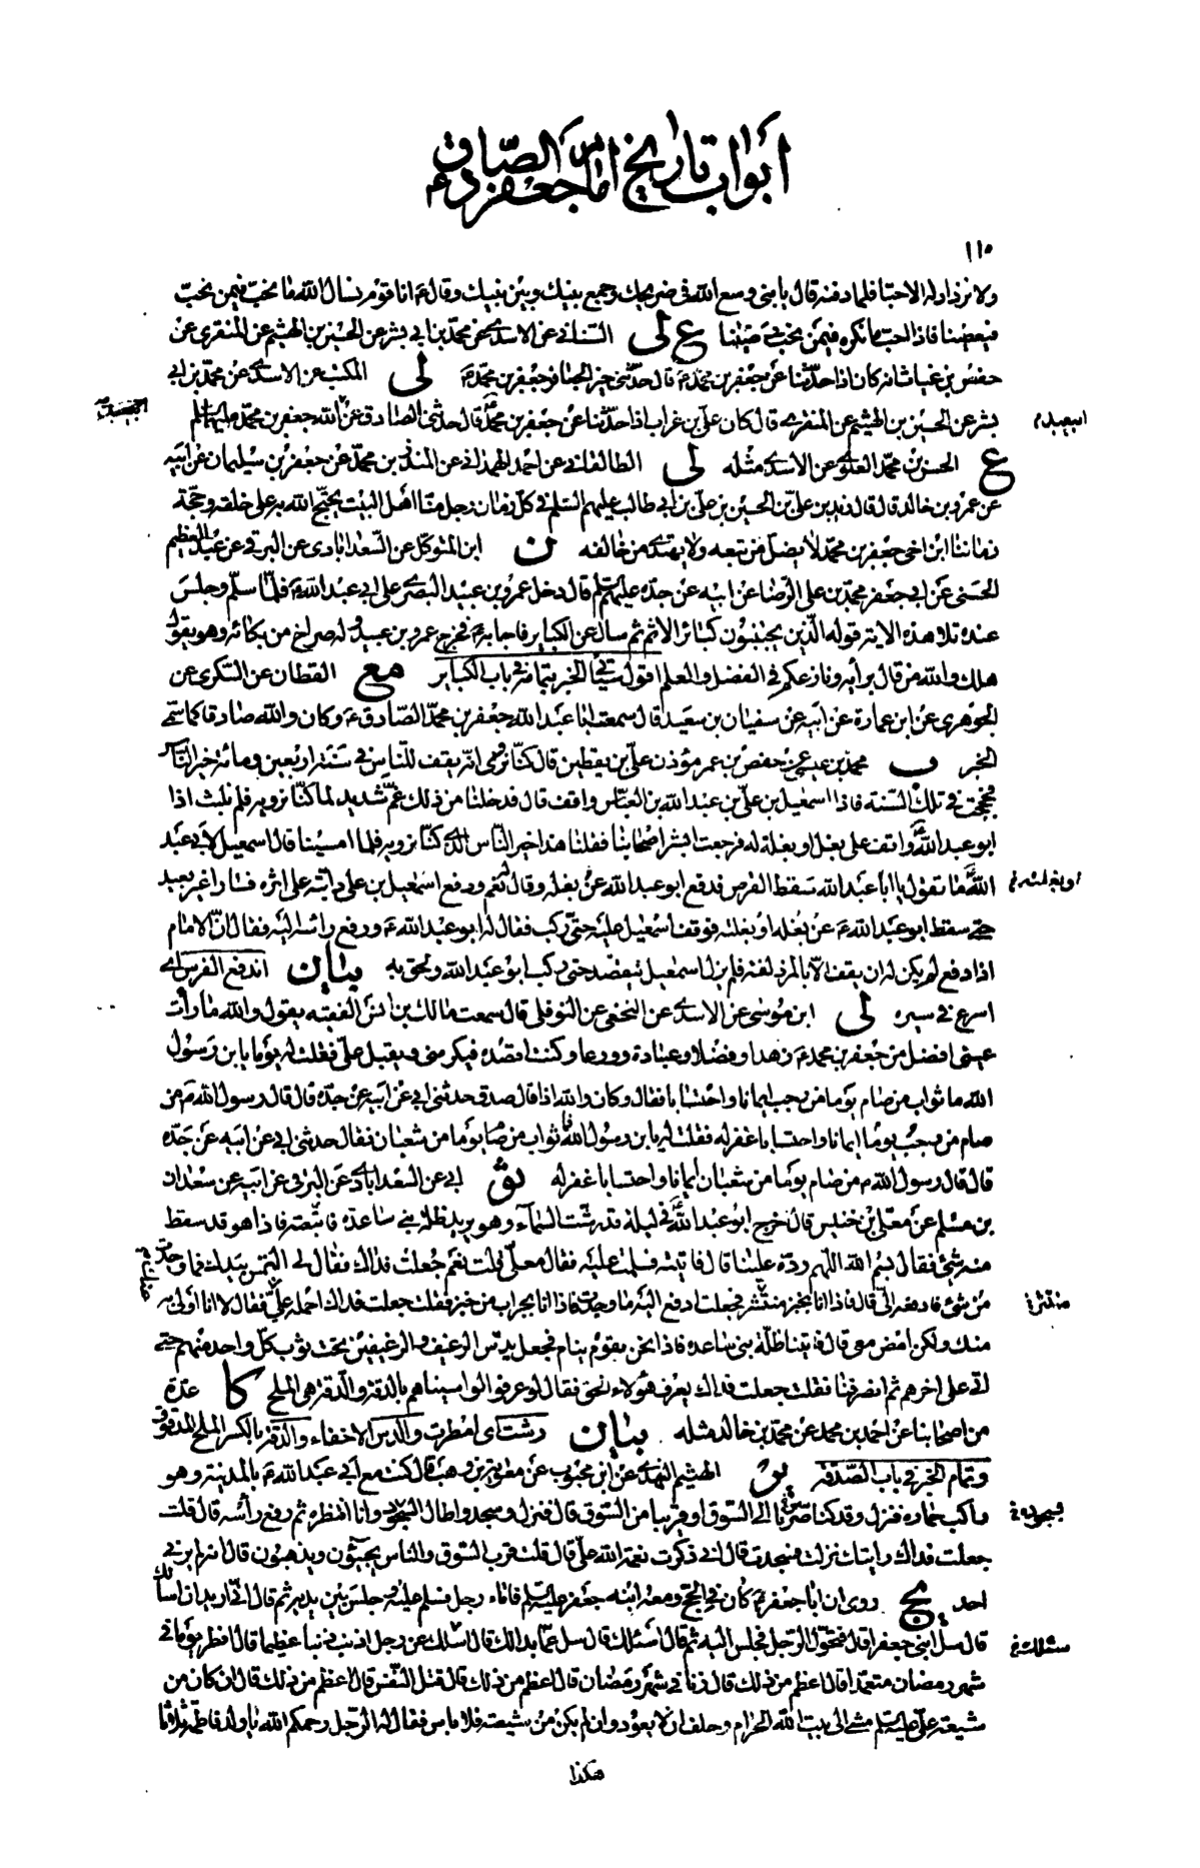 أبواب تاريخ امام جعفر الصادق ع
١١٠
ولا نرد ادله الاحبا فلما دفنه قال يا بنى وسع الله فى ضريحك وجمع بينك وبين نبيك وقال ع انا قوم نسال الله ما نحب فيمن نحب
فيعطينا فاذا احب ما نكره فيمن نحب رضينا ع لى السنانى عن الاسدى عن محمد بن ابى بشر عن الحسين بن الهيثم عن المنقرى عن
حفص بن غياث انه كان اذا حدثنا عن جعفر بن محمد ع قال حدثنى خير الجعافر جعفر بن محمد ع لى المكتب عن الاسدى عن محمد بن ابى
بشر عن الحسين بن الهيثم عن المنقرى قال كان على بن غراب اذا حدثنا عن جعفر بن محمد قال حدثنى الصادق عن الله جعفر بن محمد عليهما السلم
ع الحسن بن محمد العلوى عن الاسدى مثله لى الطالقانى عن احمد الهمدانى عن المنذر بن محمد عن جعفر بن سليمان عن ابيه
عن عمرو بن خالد قال قال زيد بن على بن الحسين بن على بن ابى طالب عليهم السلم فى كل زمان رجل منا اهل البيت يحتج الله به على خلقه وحجة
زماننا ابن اخى جعفر بن محمد لا يضل من تبعه ولا يهتدى من خالفه ن ابن المتوكل عن السعد ابادى عن البرقى عن عبد العظيم
الحسنى عن ابى جعفر محمد بن على الرضا عن ابيه عن جده عليهم السلم قال دخل عمرو بن عبيد البصرى على ابى عبد الله ع فلما سلم وجلس
عنده تلا هذه الاية قوله الذين يجتنبون كبائر الاثم ثم سال عن الكباير فاجابه ع فخرج عمرو بن عبيد وله صراخ من بكائه وهو يقول
هلك والله من قال برأيه ونازعكم فى الفضل والعلم اقول سيأتى الخبر بتمامه فى باب الكباير مع القطان عن السكرى عن
الجوهرى عن ابن عمارة عن ابيه عن سفيان بن سعيد قال سمعت ابا عبد الله جعفر بن محمد الصادق ع وكان والله صادقا كما سمى
الخبر ب محمد بن عيسى عن حفص بن عمر مؤذن على بن يقطين قال كنا نروى انه يقف للناس فى سنة اربعين ومائة خير الناس
فحججت فى تلك السنة فاذا اسمعيل بن على بن عبد الله بن العباس واقف قال فدخلنا من ذلك غم شديد لما كنا نرويه فلم نلبث اذا
ابو عبد الله ع واقف على بغل او بغلة له فرجعت ابشر اصحابنا فقلنا هذا خير الناس الذى كنا نرويه فلما امسينا قال اسمعيل لابى عبد
الله ع ما تقول يا ابا عبد الله سقط القرص فدفع ابو عبد الله عن بغله وقال نعم ودفع اسمعيل بن على دابته على اثره فسارا غير بعيد
حتى سقط ابو عبد الله ع عن بغله او بغلته فوقف اسمعيل عليه حتى ركب فقال له ابو عبد الله ع ورفع راسه اليه فقال ان الامام
اذا دفع لم يكن له ان يقف الا بالمزدلفة فلم يزل اسمعيل يتقصد حتى ركب ابو عبد الله ولحق به بيان اندفع الفرس اى
اسرع فى سيره لى ابن موسى عن الاسدى عن النخعى عن النوفلى قال سمعت مالك بن انس الفقيه يقول والله ما رأت
عينى افضل من جعفر بن محمد ع زهدا وفضلا وعبادة وورعا وكنت اقصده فيكرمنى ويقبل على فقلت له يوما يا بن رسول
الله ما ثواب من صام يوما من رجب ايمانا واحتسابا فقال وكان والله اذا قال صدق حدثنى ابى عن ابيه عن جده قال قال رسول الله ص من
صام من رجب يوما ايمانا واحتسابا غفر له فقلت له يا بن رسول الله ما ثواب من صام يوما من شعبان فقال حدثنى ابى عن ابيه عن جده
قال قال رسول الله ص من صام يوما من شعبان ايمانا واحتسابا غفر له ثو ابى عن السعد ابادى عن البرقى عن ابيه عن سعدان
بن مسلم عن معلى بن خنيس قال خرج ابو عبد الله ع فى ليلة قد رشت السماء وهو يريد ظلة بنى ساعدة فاتبعته فاذا هو قد سقط
منه شئ فقال بسم الله اللهم رده علينا قال فاتيته فسلمت عليه فقال معلى قلت نعم جعلت فداك فقال لى التمس بيدك فما وجدت
من شئ فادفعه الى قال فاذا انا بخبز منتشر فجعلت ادفع اليه ما وجدت فاذا انا بجراب من خبز فقلت جعلت فداك احمله على فقال لا انا اولى به
منك ولكن امض معى قال فاتينا ظلة بنى ساعدة فاذا نحن بقوم نيام فجعل يدس الرغيف والرغيفين تحت ثوب كل واحد منهم حتى
اتى على اخرهم ثم انصرفنا فقلت جعلت فداك يعرف هؤلاء الحق فقال لو عرفوا لواسيناهم بالدقة والدقة هى الملح كا عدة
من اصحابنا عن احمد بن محمد عن محمد بن خالد مثله بيان رشت اى امطرت والدس الاخفاء والدقة بالكسر الملح المدقوق
وتمام الخبر فى باب الصدقة ير الهيثم النهدى عن ابن محبوب عن معوية بن وهب قال كنت مع ابى عبد الله ع بالمدينة وهو
راكب حماره فنزل وقد كنا صرنا الى السوق او قريبا من السوق قال فنزل وسجد واطال السجود وانا انتظره ثم رفع رأسه قال قلت
جعلت فداك رايتك نزلت فسجدت قال انى ذكرت نعمة الله على قال قلت قرب السوق والناس يجيئون ويذهبون قال انه لم يرنى
احد يج روى ان ابا جعفر ع كان فى الحج ومعه ابنه جعفر عليه السلم فاتاه رجل فسلم عليه وجلس بين يديه ثم قال انى اريد ان اسالك
قال سل ابنى جعفرا قال فتحول الرجل فجلس اليه ثم قال أسئلك قال سل عما بدا لك قال اسئلك عن رجل اذنب ذنبا عظيما قال افطر يوما فى
شهر رمضان متعمدا قال اعظم من ذلك قال زنا فى شهر رمضان قال اعظم من ذلك قال قتل النفس قال اعظم من ذلك قال ان كان من
شيعة على عليه السلم مشى الى بيت الله الحرام وحلف ان لا يعود وان لم يكن من شيعته فلا باس فقال له الرجل رحمكم الله يا ولد فاطمة ثلاثا
هكذا